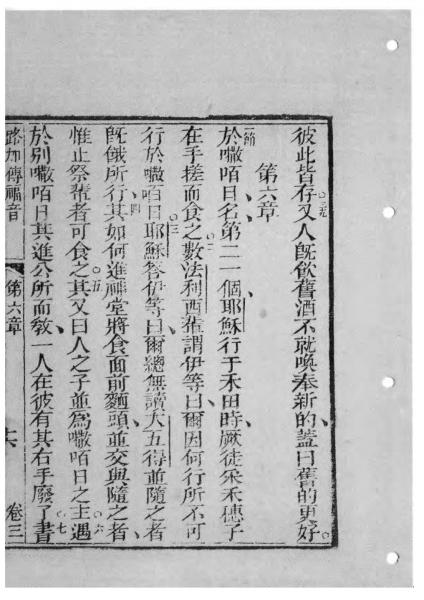 彼此皆存又人既飲舊酒不就喚奉新的蓋曰舊的更好
第六章
於嗽咟日名第二一個耶穌行于禾田時厥徒采禾穗子
在手搓而食之數法利西輩謂伊等曰爾因何行所不可
行於嗽咟日耶穌答伊等曰爾總無讀大五得並隨之者
既餓所行其如何進神堂將食面前麵頭並交與隨之者
惟止祭輩者可食之其又曰人之子並為嗽咟日之主遇
於別嗽咟日其進公所而教一人在彼有其右手廢了書
路加傳福音 第六章 卷三